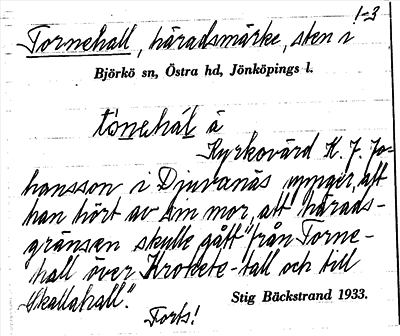 1-3
Tornehall, häradsmärke, sten i
Björkö sn, Östra hd, Jönköpings l.
Kyrkovärd K. J. Jo-
hansson i Djuvanäs uppger, att
han hört av sin mor, att härads-
gränsen skulle gått "från Torne-
hall över Krokete-tall och till
Skallahall".
Forts!
Stig Bäckstrand 1933.